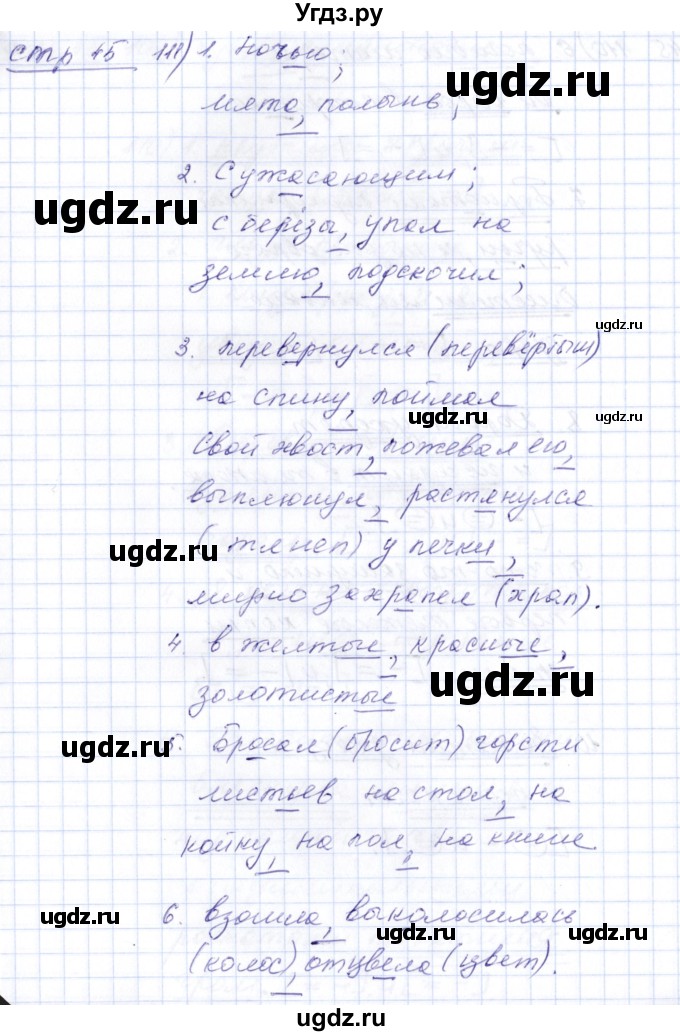 Угдз.ру
стр 45 111) 1. Ночью;
мята, полынь;
2. С ужасающим;
с берёзы, упал на
землю, подскочил;
3. перевернулся (перевёртыш)
на спину, поймал
свой хвост, пожевал его,
выплюнул, растянулся
у печки,
мирно захрапел (храп).
4. в желтые, красные,
золотистые
5. Бросал (бросит) горсти
листьев на стол, на
койку, на пол, на книги.
6. взошла, выколосилась
(колос), отцвела (цвет).
ugdz.ru
ugdz.ru
ugdz.ru
ugdz.ru
ugdz.ru
ugdz.ru
ugdz.ru
ugdz.ru
ugdz.ru
ugdz.ru
ugdz.ru
ugdz.ru